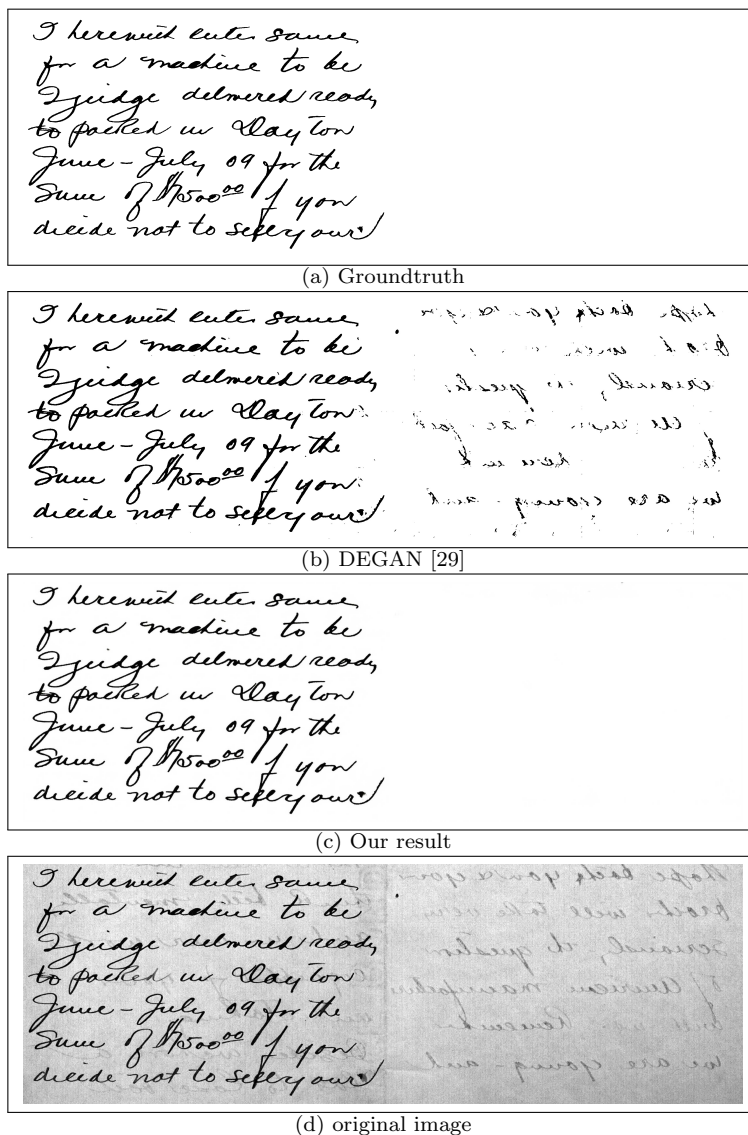 I herewith enter same
for a machine to be
I judge delivered ready
to packed in Dayton
June – July 09 for the
Sum of $7500.00 if you
decide not to sell your
(a) Groundtruth
I herewith enter same
for a machine to be
I judge delivered ready
to packed in Dayton
June – July 09 for the
Sum of $7500.00 if you
decide not to sell your
we are young - and
(b) DEGAN [29]
I herewith enter same
for a machine to be
I judge delivered ready
to packed in Dayton
June – July 09 for the
Sum of $7500.00 if you
decide not to sell your
(c) Our result
I herewith enter same
for a machine to be
I judge delivered ready
to packed in Dayton
June – July 09 for the
Sum of $7500.00 if you
decide not to sell your
question
American
we are young - and
(d) original image